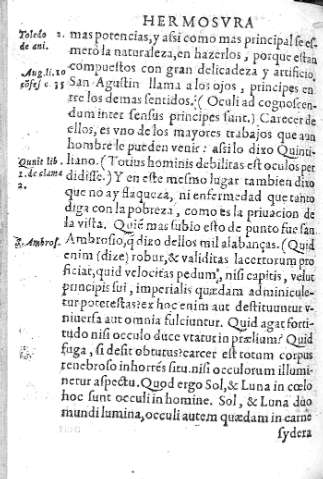 HERMOSVRA
Toledo 2.
de ani.
mas potencias, y assi como mas principal se es-
merò la naturaleza, en hazerlos, porque estan
compuestos con gran delicadeza y artificio.
Aug. li. 10
cõfes c. 35
San Agustin llama a los ojos, principes en
tre los demas sentidos. (Oculi ad cognoscen-
dum inter sensus principes sunt.) Carecer de
ellos, es vno de los mayores trabajos que a vn
hombre le pueden venir: assi lo dixo Quinti-
Quint lib.
1. de clama
2.
liano. (Totius hominis debilitas est oculos per
didisse.) Y en este mesmo lugar tambien dixo
que no ay flaqueza, ni enfermedad que tanto
diga con la pobreza, como es la priuacion de
la vista. Quiẽ mas subio esto de punto fue san
S. Ambros.
Ambrosio, q̃ dizo dellos mil alabanças. (Quid
enim (dize) robur, & validitas lacertorum pro
ficiat, quid velocitas pedum, nisi capitis, velut
principis sui, imperialis quædam adminicule-
tur potestas? ex hoc enim aut destituuntur v-
niuersa aut omnia fulciuntur. Quid agat forti-
tudo nisi oculo duce vtatur in prælium? Quid
fuga, si desit obtutus? carcer est totum corpus
tenebroso inhorrẽs situ. nisi occulorum illumi
netur aspectu. Quod ergo Sol, & Luna in cœlo
hoc sunt occuli in homine. Sol, & Luna duo
mundi lumina, occuli autem quædam in carne
sydera